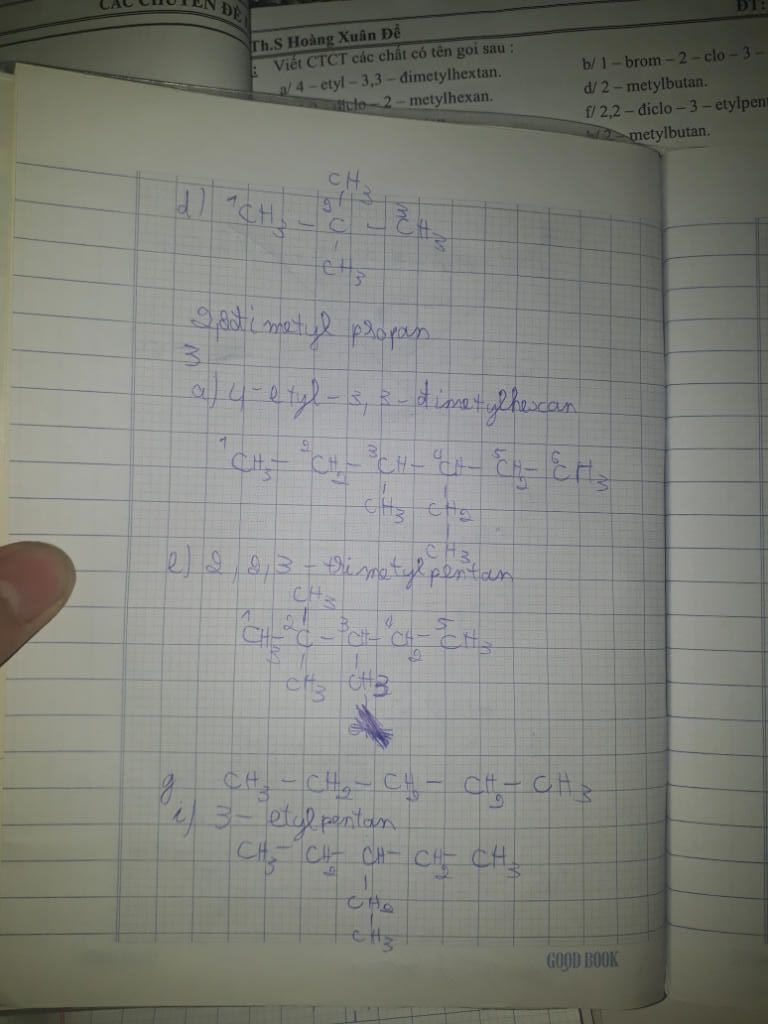 CÁC CHUYÊN ĐỀ
ĐT:
Th.S Hoàng Xuân Đề
: Viết CTCT các chất có tên gọi sau :
a/ 4 – etyl – 3,3 – đimetylhextan.
b/ 1 – brom – 2 – clo – 3 –
điclo – 2 – metylhexan.
d/ 2 – metylbutan.
f/ 2,2 – điclo – 3 – etylpent
2 – metylbutan.
CH3
d) 1CH3 – 2C – 3CH3
CH3
đimetyl propan
3
a) 4 – etyl – 3, 3 – đimetylhexan
1CH3 – 2CH2 – 3CH – 4CH – 5CH2 – 6CH3
CH3 CH2
CH3
e) 2, 2, 3 – trimetylpentan
CH3
1CH3 – 2C – 3CH – 4CH2 – 5CH3
CH3 CH3
g CH3 – CH2 – CH2 – CH2 – CH3
i) 3 – etylpentan
CH3 – CH2 – CH – CH2 – CH3
CH2
CH3
GOOD BOOK